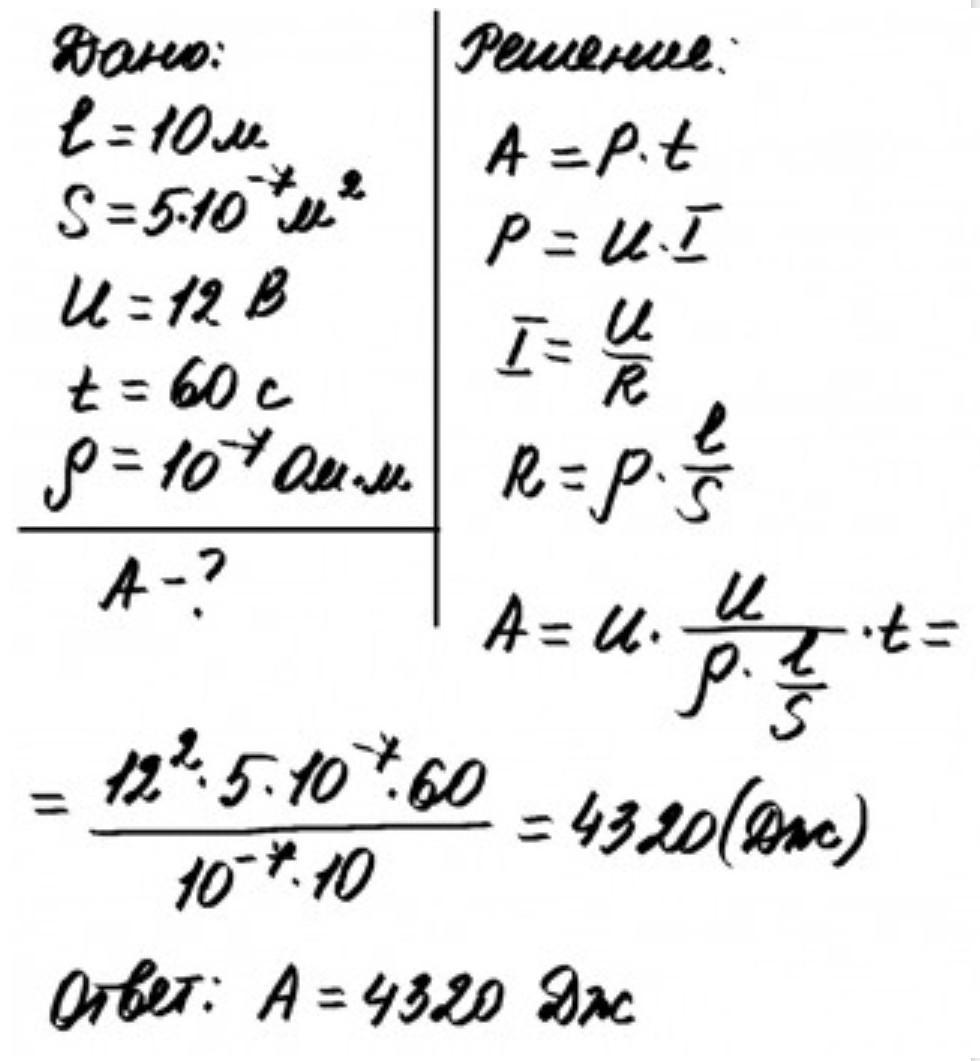 Дано:
l = 10 м
S = 5·10⁻⁷ м²
U = 12 В
t = 60 с
ρ = 10⁻⁷ Ом·м
A - ?
Решение:
A = P · t
P = U · I
I = U/R
R = ρ · l/S
A = U · U/(ρ · l/S) · t =
= (12² · 5 · 10⁻⁷ · 60)/(10⁻⁷ · 10) = 4320 (Дж)
Ответ: A = 4320 Дж